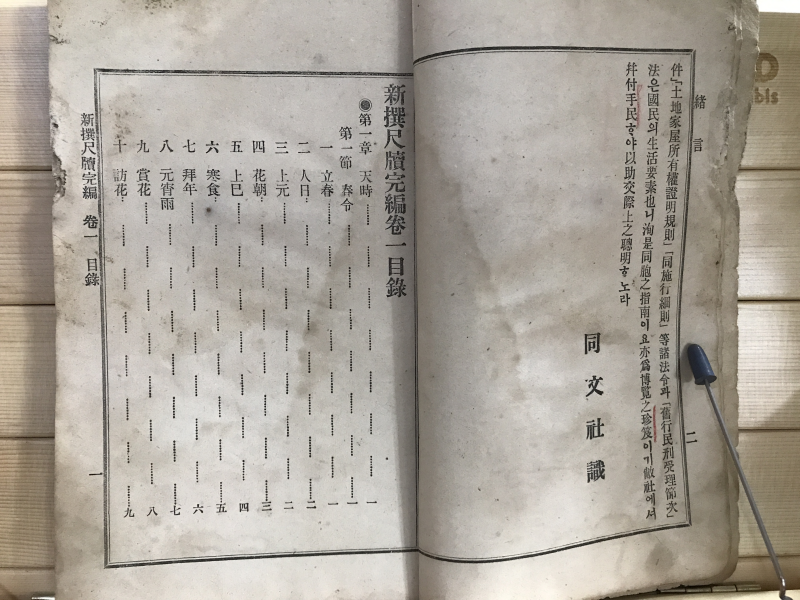 緖言
二
件」「土地家屋所有權證明規則」「同施行細則」等諸法令과「舊行民刑受理節次」
法은國民의生活要素也니洵是同胞之指南이요亦爲博覽之珍笈이기敝社에셔
幷付手民ᄒᆞ야以助交際上之聰明ᄒᆞ노라
同文社識
新撰尺牘完編卷一目錄
●第一章 天時 一
第一節 春令 一
一 立春 一
二 人日 二
三 上元 二
四 花朝 三
五 上巳 四
六 寒食 五
七 拜年 六
八 元宵雨 七
九 賞花 八
十 訪花 九
新撰尺牘完編 卷一 目錄
一